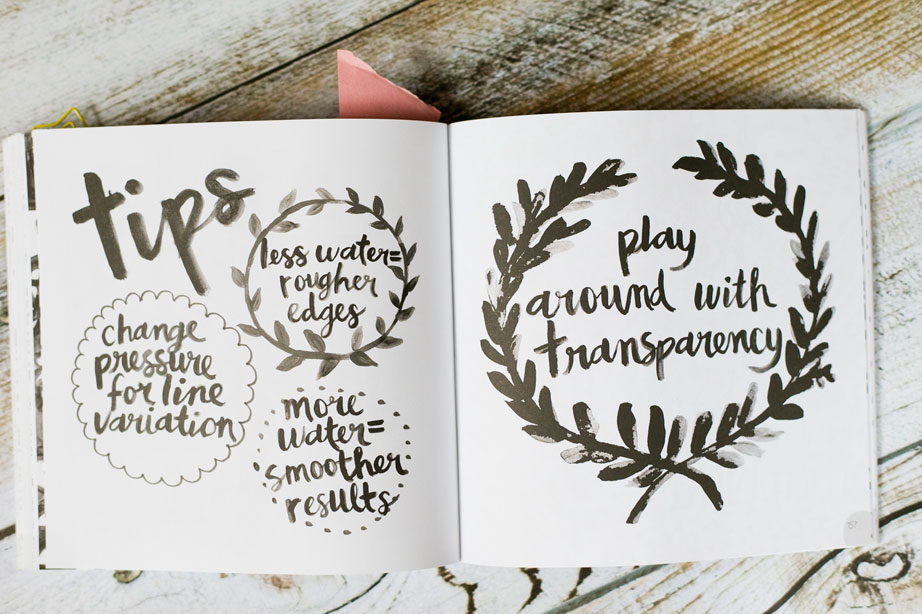 tips
less water=
rougher
edges
change
pressure
for line
variation
more
water=
smoother
results
play
around with
transparency
157